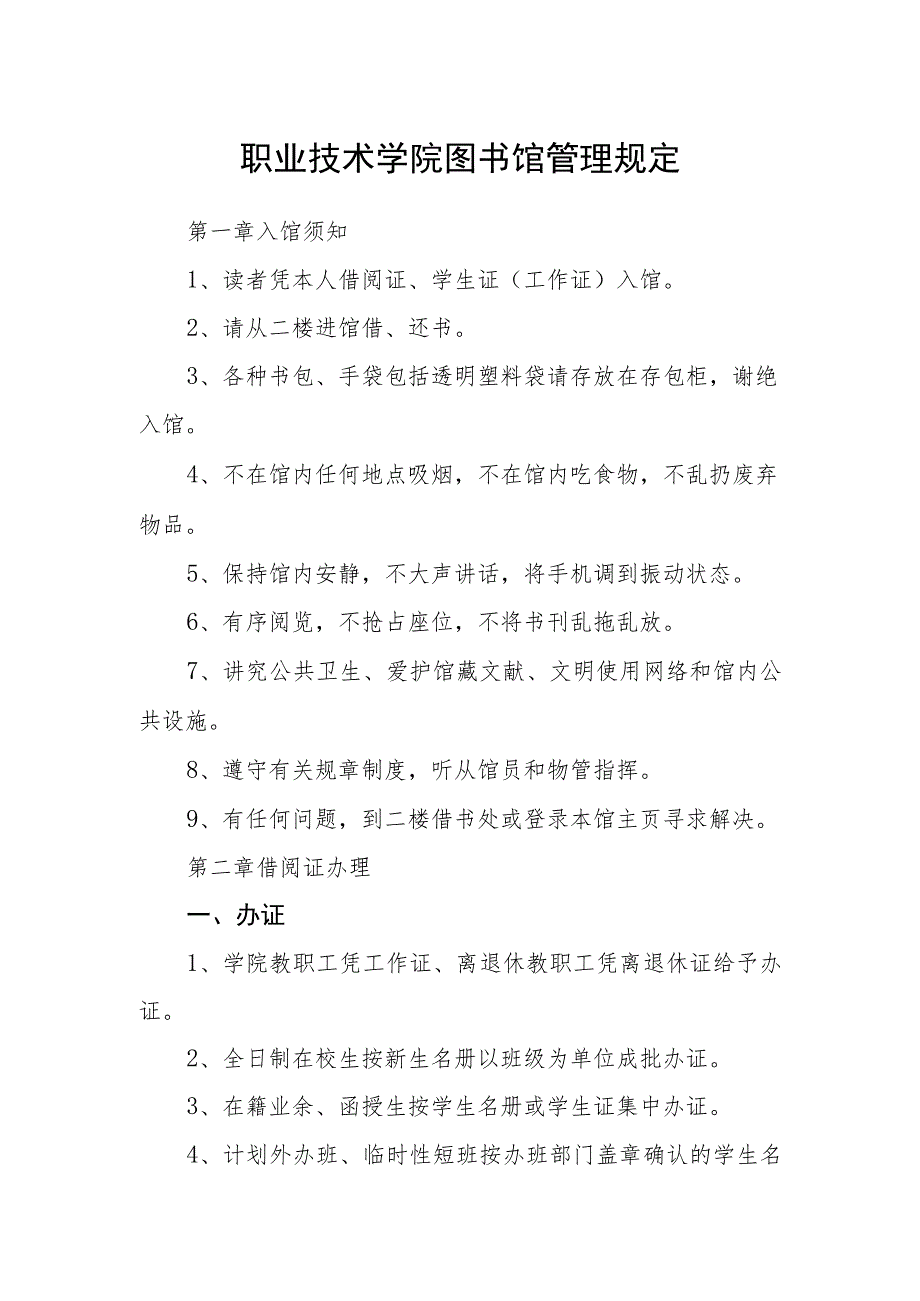 职业技术学院图书馆管理规定
第一章入馆须知
1、读者凭本人借阅证、学生证（工作证）入馆。
2、请从二楼进馆借、还书。
3、各种书包、手袋包括透明塑料袋请存放在存包柜，谢绝
入馆。
4、不在馆内任何地点吸烟，不在馆内吃食物，不乱扔废弃
物品。
5、保持馆内安静，不大声讲话，将手机调到振动状态。
6、有序阅览，不抢占座位，不将书刊乱拖乱放。
7、讲究公共卫生、爱护馆藏文献、文明使用网络和馆内公
共设施。
8、遵守有关规章制度，听从馆员和物管指挥。
9、有任何问题，到二楼借书处或登录本馆主页寻求解决。
第二章借阅证办理
一、办证
1、学院教职工凭工作证、离退休教职工凭离退休证给予办
证。
2、全日制在校生按新生名册以班级为单位成批办证。
3、在籍业余、函授生按学生名册或学生证集中办证。
4、计划外办班、临时性短班按办班部门盖章确认的学生名